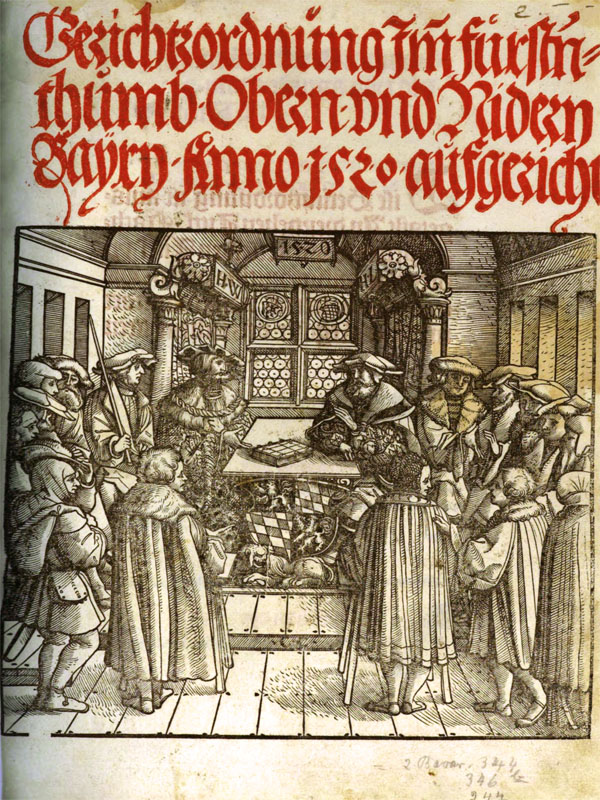 2.
Gerichtzordnüng Im fürstn-
thumb· Obern· vnd Nidern
Bayrn· Anno 1520· aufgericht
1520
H·W
2 Bavar. 344
346
944